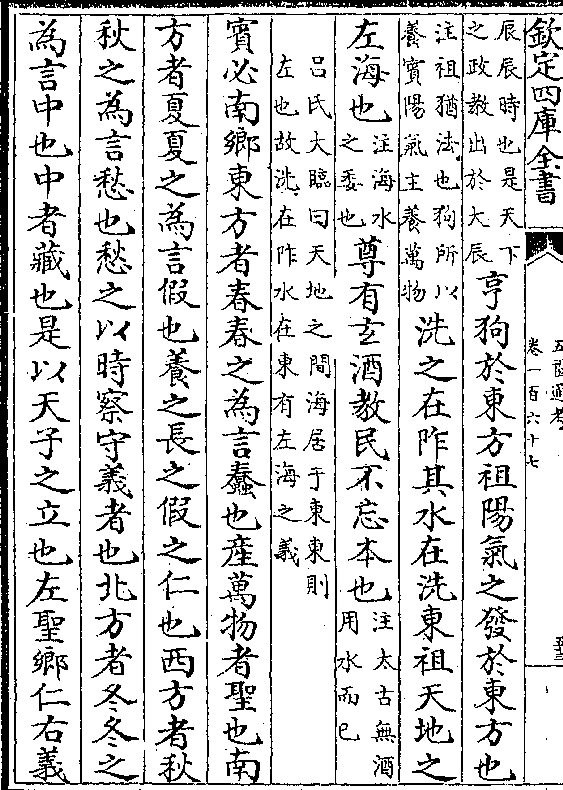 欽定四庫全書
五禮通考
卷一百六十七
辰辰時也是天下
之政教出於大辰
亨狗於東方祖陽氣之發於東方也
注祖猶法也狗所以
養賓陽氣主養萬物
洗之在阼其水在洗東祖天地之
左海也
注海水
之委也
尊有玄酒教民不忘本也
注太古無酒
用水而已
呂氏大臨曰天地之間海居于東東則
左也故洗在阼水在東有左海之義
賓必南鄉東方者春春之為言蠢也產萬物者聖也南
方者夏夏之為言假也養之長之假之仁也西方者秋
秋之為言愁也愁之以時察守義者也北方者冬冬之
為言中也中者藏也是以天子之立也左聖鄉仁右義